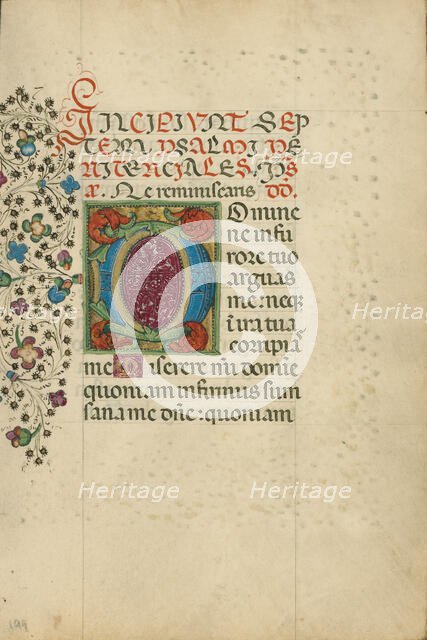 INCIPIVNT SEP
TEM PSALMI PE
NITENCIALES. PS
Ne reminiscaris DD.
Domine
ne in fu
rore tuo
arguas
me: neq
in ira tua
corripia
me Miserere mei domie
quoniam infirmus sum
sana me dne: quoniam
Heritage
Heritage
Heritage
Heritage
Heritage
Heritage
199